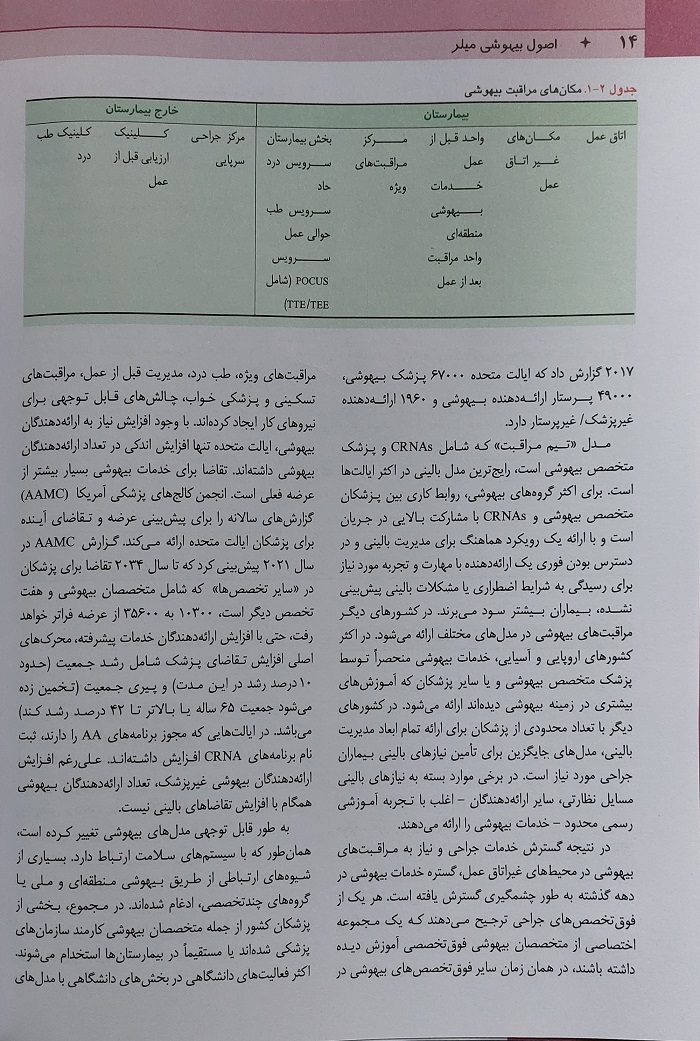 ۱۴ ✦ اصول بیهوشی میلر
جدول ۲-۱. مکان‌های مراقبت بیهوشی
بیمارستان
خارج بیمارستان
اتاق عمل
مکان‌های
غیر اتاق
عمل
واحد قبل از
عمل
خدمات
بیهوشی
منطقه‌ای
واحد مراقبت
بعد از عمل
مرکز
مراقبت‌های
ویژه
بخش بیمارستان
سرویس درد
حاد
سرویس طب
حوالی عمل
سرویس
POCUS (شامل
TTE/TEE)
مرکز جراحی
سرپایی
کلینیک
ارزیابی قبل از
عمل
کلینیک طب
درد
۲۰۱۷ گزارش داد که ایالت متحده ۶۷۰۰۰ پزشک بیهوشی،
۴۹۰۰۰ پرستار ارائه‌دهنده بیهوشی و ۱۹۶۰ ارائه‌دهنده
غیرپزشک/ غیرپرستار دارد.
مدل «تیم مراقبت» که شامل CRNAs و پزشک
متخصص بیهوشی است، رایج‌ترین مدل بالینی در اکثر ایالت‌ها
است. برای اکثر گروه‌های بیهوشی، روابط کاری بین پزشکان
متخصص بیهوشی و CRNAs با مشارکت بالایی در جریان
است و با ارائه یک رویکرد هماهنگ برای مدیریت بالینی و در
دسترس بودن فوری یک ارائه‌دهنده با مهارت و تجربه مورد نیاز
برای رسیدگی به شرایط اضطراری یا مشکلات بالینی پیش‌بینی
نشده، بیماران بیشتر سود می‌برند. در کشورهای دیگر
مراقبت‌های بیهوشی در مدل‌های مختلف ارائه می‌شود. در اکثر
کشورهای اروپایی و آسیایی، خدمات بیهوشی منحصراً توسط
پزشک متخصص بیهوشی و یا سایر پزشکان که آموزش‌های
بیشتری در زمینه بیهوشی دیده‌اند ارائه می‌شود. در کشورهای
دیگر با تعداد محدودی از پزشکان برای ارائه تمام ابعاد مدیریت
بالینی، مدل‌های جایگزین برای تأمین نیازهای بالینی بیماران
جراحی مورد نیاز است. در برخی موارد بسته به نیازهای بالینی
مسایل نظارتی، سایر ارائه‌دهندگان – اغلب با تجربه آموزشی
رسمی محدود – خدمات بیهوشی را ارائه می‌دهند.
در نتیجه گسترش خدمات جراحی و نیاز به مراقبت‌های
بیهوشی در محیط‌های غیراتاق عمل، گستره خدمات بیهوشی در
دهه گذشته به طور چشمگیری گسترش یافته است. هر یک از
فوق‌تخصص‌های جراحی ترجیح می‌دهند که یک مجموعه
اختصاصی از متخصصان بیهوشی فوق‌تخصصی آموزش دیده
داشته باشند، در همان زمان سایر فوق‌تخصص‌های بیهوشی در
مراقبت‌های ویژه، طب درد، مدیریت قبل از عمل، مراقبت‌های
تسکینی و پزشکی خواب، چالش‌های قابل توجهی برای
نیروهای کار ایجاد کرده‌اند. با وجود افزایش نیاز به ارائه‌دهندگان
بیهوشی، ایالت متحده تنها افزایش اندکی در تعداد ارائه‌دهندگان
بیهوشی داشته‌اند. تقاضا برای خدمات بیهوشی بسیار بیشتر از
عرضه فعلی است. انجمن کالج‌های پزشکی آمریکا (AAMC)
گزارش‌های سالانه را برای پیش‌بینی عرضه و تقاضای آینده
برای پزشکان ایالت متحده ارائه می‌کند. گزارش AAMC در
سال ۲۰۲۱ پیش‌بینی کرد که تا سال ۲۰۳۴ تقاضا برای پزشکان
در «سایر تخصص‌ها» که شامل متخصصان بیهوشی و هفت
تخصص دیگر است، ۱۰۳۰۰ به ۳۵۶۰۰ از عرضه فراتر خواهد
رفت، حتی با افزایش ارائه‌دهندگان خدمات پیشرفته، محرک‌های
اصلی افزایش تقاضای پزشک شامل رشد جمعیت (حدود
۱۰ درصد رشد در این مدت) و پیری جمعیت (تخمین زده
می‌شود جمعیت ۶۵ ساله یا بالاتر تا ۴۲ درصد رشد کند)
می‌باشد. در ایالت‌هایی که مجوز برنامه‌های AA را دارند، ثبت
نام برنامه‌های CRNA افزایش داشته‌اند. علی‌رغم افزایش
ارائه‌دهندگان بیهوشی غیرپزشک، تعداد ارائه‌دهندگان بیهوشی
همگام با افزایش تقاضاهای بالینی نیست.
به طور قابل توجهی مدل‌های بیهوشی تغییر کرده است،
همان‌طور که با سیستم‌های سلامت ارتباط دارد. بسیاری از
شیوه‌های ارتباطی از طریق بیهوشی منطقه‌ای و ملی یا
گروه‌های چندتخصصی، ادغام شده‌اند. در مجموع، بخشی از
پزشکان کشور از جمله متخصصان بیهوشی کارمند سازمان‌های
پزشکی شده‌اند یا مستقیماً در بیمارستان‌ها استخدام می‌شوند.
اکثر فعالیت‌های دانشگاهی در بخش‌های دانشگاهی با مدل‌های